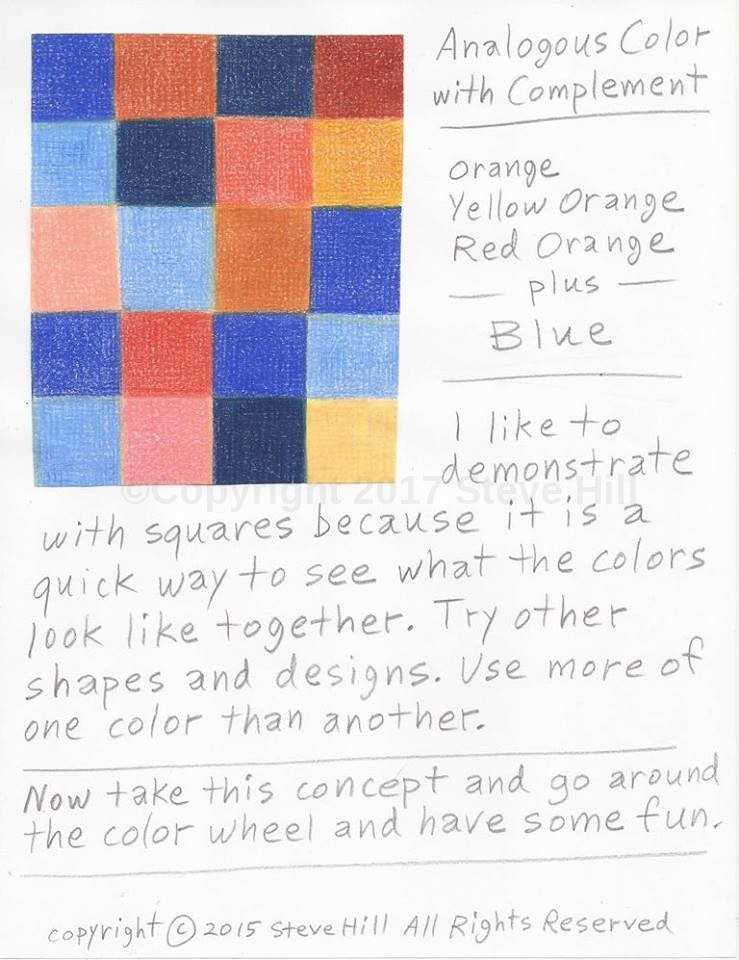 Analogous Color
with Complement
orange
Yellow Orange
Red Orange
— plus —
Blue
I like to
demonstrate
©Copyright 2017 Steve Hill
with squares because it is a
quick way to see what the colors
look like together. Try other
shapes and designs. Use more of
one color than another.
Now take this concept and go around
the color wheel and have some fun.
copyright © 2015 Steve Hill All Rights Reserved